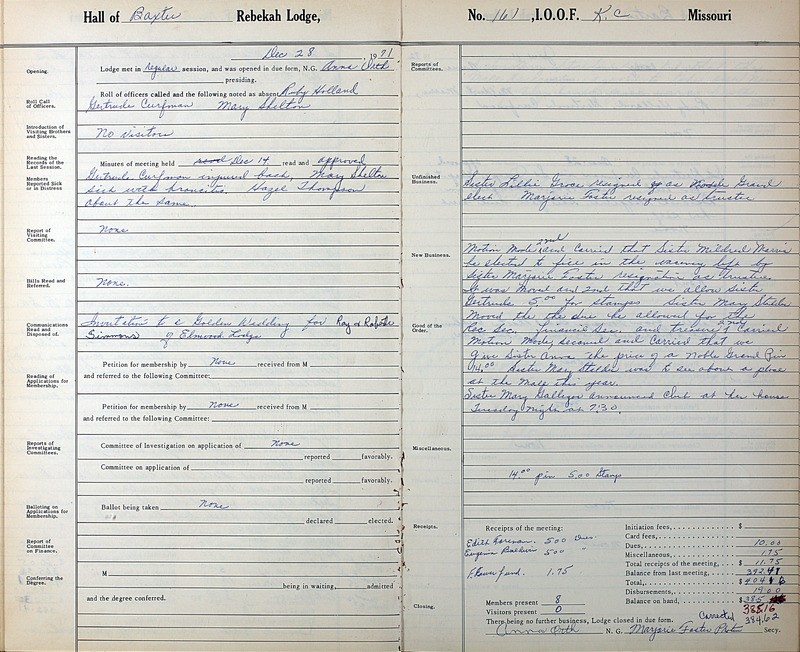 Hall of Baxter Rebekah Lodge,
Dec 28, 1971
Opening.
Lodge met in regular session, and was opened in due form, N.G. Anna Orth
presiding.
Roll Call of Officers.
Roll of officers called and the following noted as absent Ruby Holland
Gertrude Curfman Mary Shelton
Introduction of Visiting Brothers and Sisters.
No visitors
Reading the Records of the Last Session.
Minutes of meeting held read Dec 14 read and approved
Members Reported Sick or in Distress
Gertrude Curfman injured back, Mary Shelton
sick with broncitis. Hazel Thompson
about the same.
Report of Visiting Committee.
None
Bills Read and Referred.
None.
Communications Read and Disposed of.
Invitation to a Golden Wedding for Roy &
Simmons of Elmwood Lodge
Reading of Applications for Membership.
Petition for membership by None received from M
and referred to the following Committee:
Petition for membership by None received from M
and referred to the following Committee:
Reports of Investigating Committees.
Committee of Investigation on application of none
reported favorably.
Committee on application of
reported favorably.
Balloting on Applications for Membership.
Ballot being taken None
declared elected.
Report of Committee on Finance.
Conferring the Degree.
M
being in waiting, admitted
and the degree conferred.
No. 161, I.O.O.F. K.C Missouri
Reports of Committees.
Unfinished Business.
Sister Lillie Groce resigned as Noble Grand
elect Marjorie Foster resigned as trustee
New Business.
Motion Made, 2nd and Carried that Sister Mildred
be elected to fice in the vacancy left by
Sister Marjorie Foster resignation as trustee
It was Moved and 2nd that we allow Sister
Gertrude 5.00 for stamps Sister Mary
Moved the the due be allowed for the
Good of the Order.
Rec Sec. Financial Sec. and treasure 2nd Carried
Motion Made, second and Carried that we
give Sister Anna the price of a Noble Grand Pin
14.00 Sister Mary was to see about a place
at the this year.
Sister Mary Gallegos announced Club at her house
Tuesday night at 7:30.
Miscellaneous.
14.00 pin 5.00 Stamp
Receipts.
Receipts of the meeting:
Edith 5.00 Dues
Eugenia Baldwin 5.00 "
Flower fund. 1.75
Initiation fees, $
Card fees,
Dues, 10.00
Miscellaneous, 1.75
Total receipts of the meeting, $ 11.75
Balance from last meeting, 392.41
Total, $ 404.16
Disbursements, 19.00
Balance on hand, $ 385
385.16
Corrected 384.62
Members present 8
Visitors present 0
Closing.
There being no further business, Lodge closed in due form.
Anna Orth N. G. Marjorie Foster Secy.